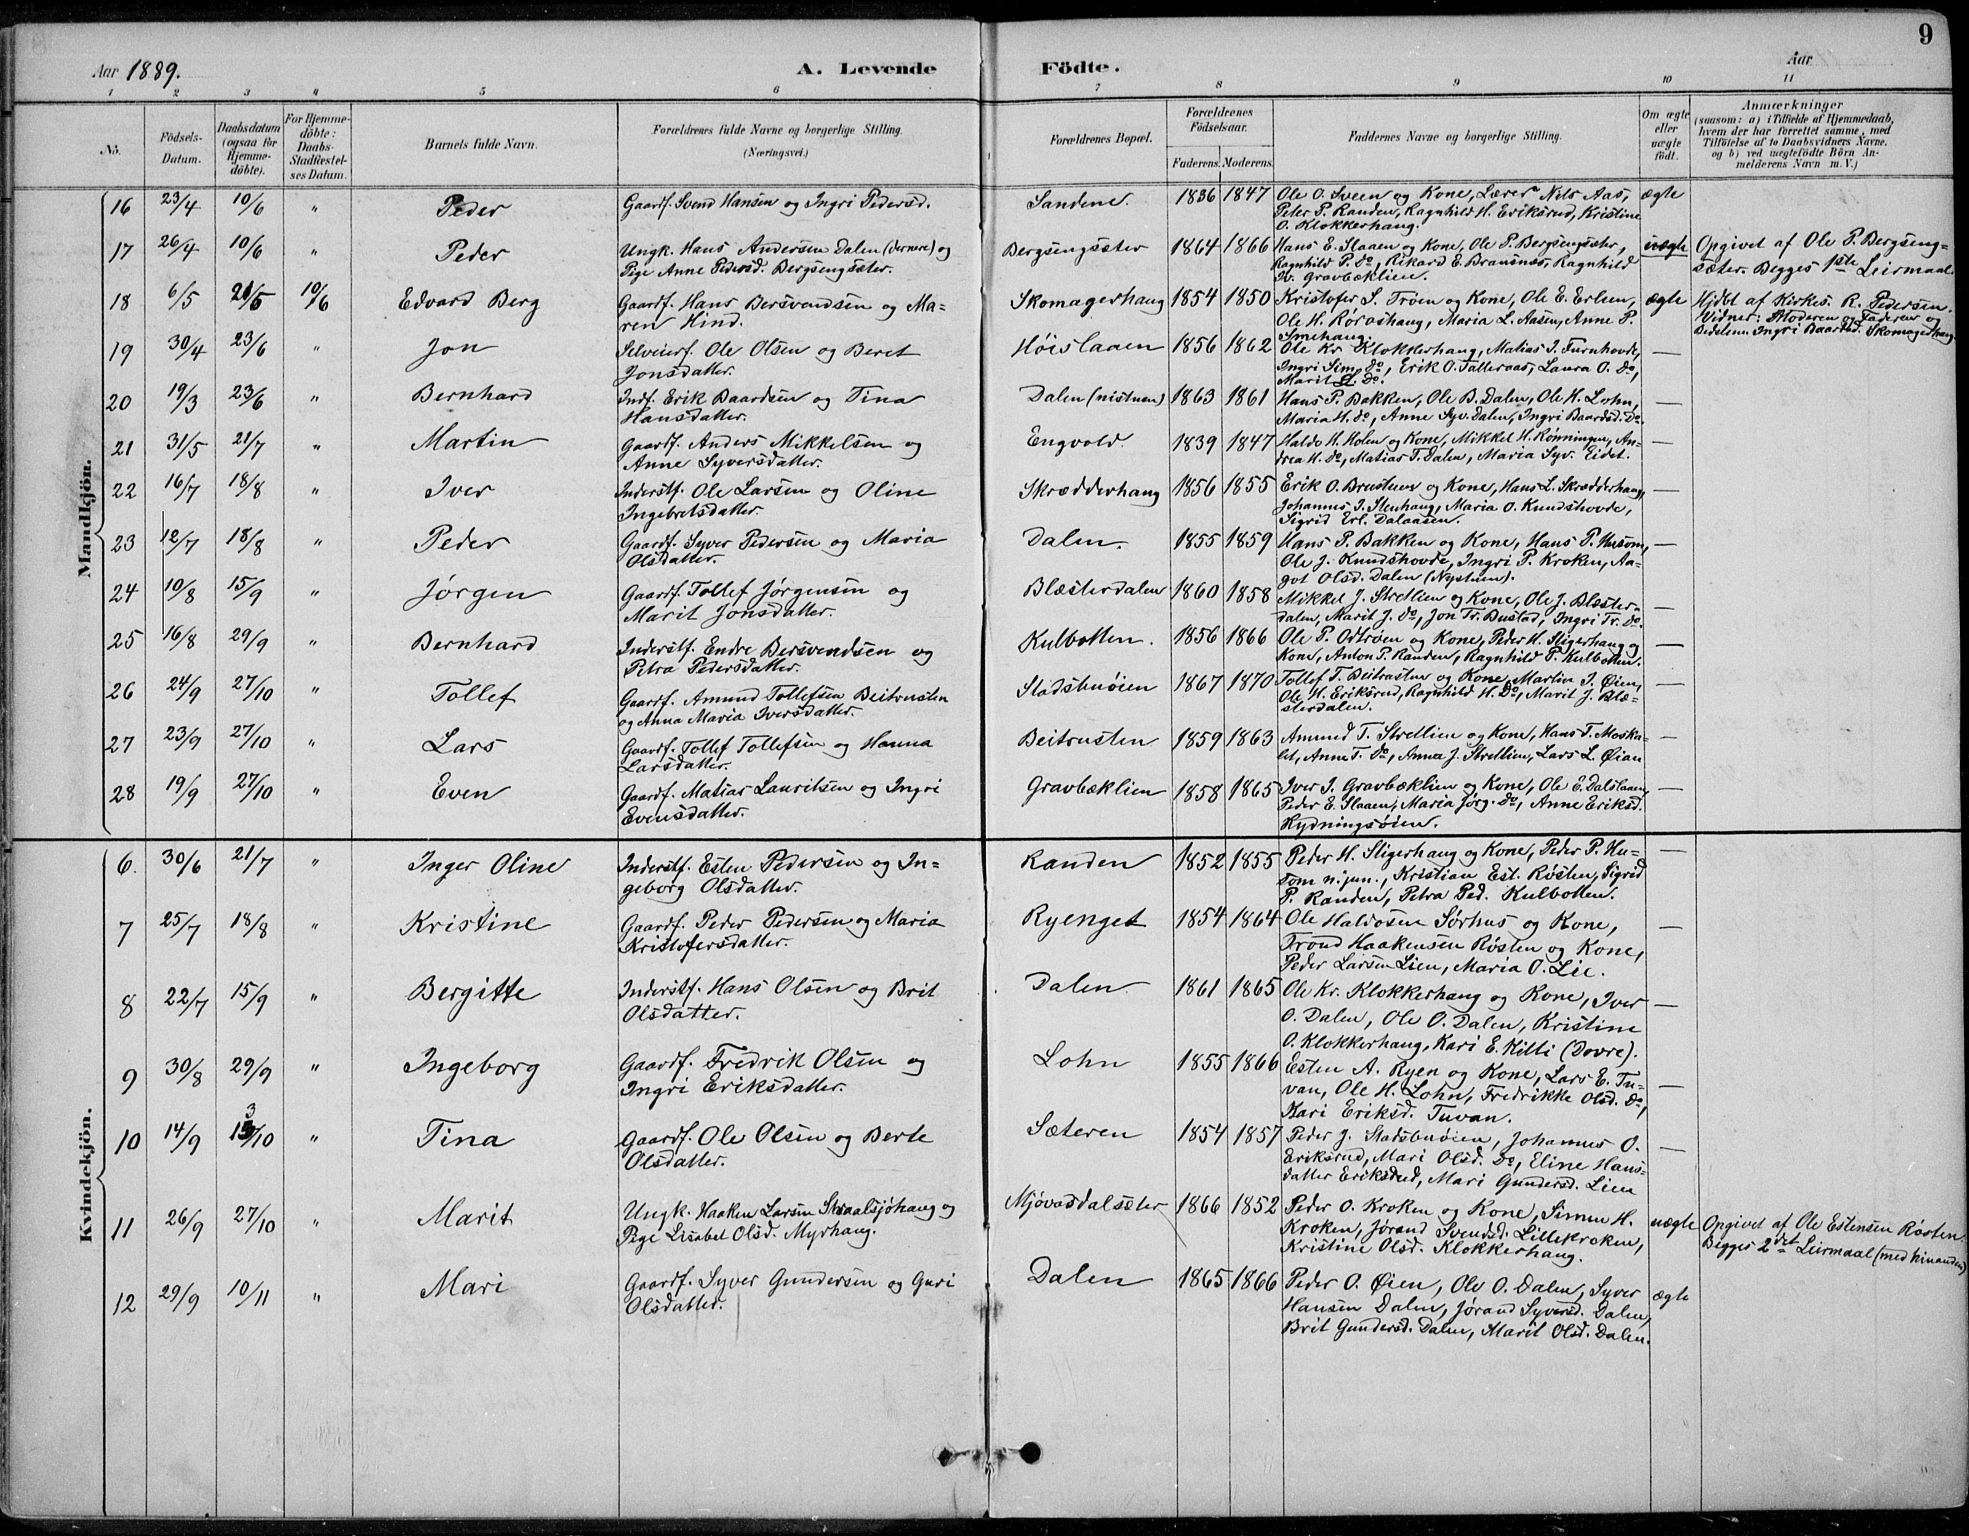 9
Aar 1889. A. Levende Födte. Aar
1 2 3 4 5 6 7 8 9 10 11
No.
Födsels-Datum.
Daabsdatum (ogsaa for Hjemme-döbte).
For Hjemme-döbte: Daabs-Stadfæstel-ses Datum.
Barnets fulde Navn.
Forældrenes fulde Navne og borgerlige Stilling.
(Næringsvei.)
Forældrenes Bopæl.
Forældrenes Födselsaar.
Faderens. Moderens.
Faddernes Navne og borgerlige Stilling.
Om ægte eller uægte födt.
Anmærkninger
(saasom: a) i Tilfælde af Hjemmedaab,
hvem der har forrettet samme, med
Tilföielse af to Daabsvidners Navne.
og b) ved uægtefödte Börn An-
melderens Navn m. V.)
Mandkjön.
16 23/4 10/6 " Peder Gaardf. Svend Hansen og Ingri Pedersd. Sandene. 1836 1847 Ole O. Sveen og Kone, Lærer Nils Aas, ægte
Peter P. Randen, Ragnhild H. Eriksrud, Kristine
O. Klokkerhaug.
17 26/4 10/6 " Peder Ungk. Hans Andersen Dalen (Dernere) og Bergsengsæter 1864 1866 Hans E. Slaaen og Kone, Ole P. Bergsengsæter, uægte Opgivet af Ole P. Bergseng-
Pige Anne Pedersd. Bergsengsæter. Ragnhild P. do, Rikard E. Bransnæs, Ragnhild sæter. Begges 1ste Leirmaal
Iv. Gravbæklien.
18 6/5 21/5 10/6 Edvard Berg Gaardf. Hans Bersvendsen og Ma- Skomagerhaug 1854 1850 Kristofer S. Trøen og Kone, Ole E. Erlien, ægte Hjdbt af Kirkes. R. Pedersen.
ren Hind. Ole H. Røroshaug, Maria L. Aasen, Anne P. Vidner: Moderen og Faderens og
Smehaug. Bedelem. Ingri Baardsd. Skomagerhaug
19 30/4 23/6 " Jon Selveierf. Ole Olsen og Beret Høislaaen 1856 1862 Ole Kr. Klokkerhaug, Matias I. Furuhovde, —
Jonsdatter. Ingri Sim. do, Erik O. Tolleraas, Laura O. do,
Marit do.
20 19/3 23/6 " Bernhard Indf. Erik Baardsen og Tina Dalen (nistuen) 1863 1861 Hans P. Bakken, Ole B. Dalen, Ole H. Lohn, —
Hansdatter. Maria H. do, Anne Syv. Dalen, Ingri Baardsd. do.
21 31/5 21/7 " Martin Gaardf. Anders Mikkelsen og Engvold. 1839 1847 Haldo H. Holen og Kone, Mikkel H. Rønningen, An- —
Anne Syversdatter. drea H. do, Matias T. Dalen, Maria Syv. Eidet.
22 16/7 18/8 " Iver Inderstf. Ole Larsen og Oline Skrædderhaug 1856 1855 Erik O. Brustuen og Kone, Hans L. Skrædderhaug, —
Ingebretsdatter. Johannes J. Stenhaug, Maria O. Kundshovde,
Sigrid Erl. Dalaasen.
23 12/7 18/8 " Peder Gaardf. Syver Pedersen og Maria Dalen. 1855 1859 Hans P. Bakken og Kone, Hans P. Husom, —
Olsdatter. Ole J. Kundshovde, Ingri P. Kroken, Aa-
got Olsd. Dalen (Nystuen).
24 10/8 15/9 " Jørgen Gaardf. Tollef Jørgensen og Blæsterdalen 1860 1858 Mikkel J. Stretlien og Kone, Ole J. Blæster- —
Marit Jonsdatter. dalen, Marit J. do, Jon Tr. Bustad, Ingri Tr. do.
25 16/8 29/9 " Bernhard Inderstf. Endre Bersvendsen og Kulbotten. 1856 1866 Ole P. Odtrøen og Kone, Peder H. Stigerhaug og —
Petra Pedersdatter. Kone, Anton P. Randen, Ragnhild P. Kulbotten.
26 24/9 27/10 " Tollef Gaardf. Amund Tollefsen Beitrusten Stadsbuøien 1867 1870 Tollef T. Beitrusten og Kone, Martin I. Øien, —
og Anna Maria Iversdatter. Ole H. Eriksrud, Ragnhild H. do, Marit J. Blæ-
sterdalen.
27 23/9 27/10 " Lars Gaardf. Tollef Tollefsen og Hanna Beitrusten 1859 1863 Amund T. Stretlien og Kone, Hans T. Moska- —
Larsdatter. let, Anne T. do, Anna J. Stretlien, Lars L. Øian
28 19/9 27/10 " Even Gaardf. Matias Lauritsen og Ingri Gravbæklien 1858 1865 Iver I. Gravbæklien og Kone, Ole E. Dalslaaen, —
Evensdatter. Peder E. Slaaen, Maria Jørg. do, Anne Eriksd.
Rydningsøien.
Kvindekjön.
6. 30/6 21/7 " Inger Oline Inderstf. Esten Pedersen og In- Randen 1852 1855 Peder H. Stigerhaug og Kone, Peder P. Hu- —
geborg Olsdatter. som n. jun., Kristian Est. Røsten, Sigrid
P. Randen, Petra Ped. Kulbotten.
7 25/7 18/8 " Kristine Gaardf. Peder Pedersen og Maria Ryenget 1854 1864 Ole Haldosen Sørhus og Kone, —
Kristofersdatter. Trond Haakensen Røsten og Kone,
Peder Larsen Lien, Maria O. Lie.
8 22/7 15/9 " Bergitte Inderstf. Hans Olsen og Brit Dalen 1861 1865 Ole Kr. Klokkerhaug og Kone, Iver —
Olsdatter. O. Dalen, Ole O. Dalen, Kristine
O. Klokkerhaug, Kari E. Kitti (Dovre).
9 30/8 29/9 " Ingeborg Gaardf. Fredrik Olsen og Lohn 1855 1866 Esten A. Ryen og Kone, Lars E. Tu- —
Ingri Eriksdatter. van, Ole H. Lohn, Fredrikke Olsd. do,
Kari Eriksd. Tuvan.
10 14/9 13/10 " Tina Gaardf. Ole Olsen og Berte Sæteren 1854 1857 Peder J. Stadsbuøien, Johannes O. —
Olsdatter. Eriksrud, Mari Olsd. do, Eline Hans-
datter Eriksrud, Mari Gundersd. Lien
11 26/9 27/10 " Marit Ungk. Haaken Larsen Straalsjøhaug og Mjøvasdalsæter 1866 1852 Peder O. Kroken og Kone, Simen H. uægte Opgivet af Ole Estensen Røsten.
Pige Lisabet Olsd. Myrhaug. Kroken, Jørand Svendsd. Lillekroken, Begges 2det Leirmaal (med hinanden)
Kristine Olsd. Klokkerhaug.
12 29/9 10/11 " Mari Gaardf. Syver Gundersen og Guri Dalen 1865 1866 Peder O. Øien, Ole O. Dalen, Syver ægte
Olsdatter. Hansen Dalen, Jørand Syversd. Dalen,
Brit Gundersd. Dalen, Marit Olsd. Dalen.